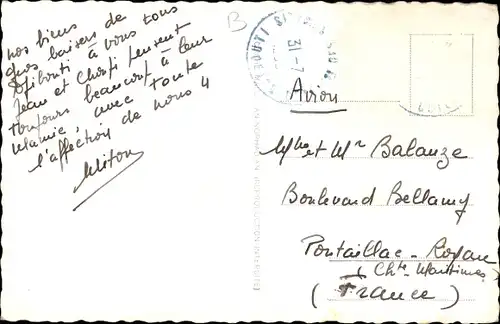 nos biens
gros baisers de
Djibouti à vous tous
Jean et pensent
toujours beaucoup à leur
Mamie, avec toute
l'affection de nous 4
B
31-7
Avion
Mme et Mr Balanze
Boulevard Bellamy
Pontaillac-Royan
(Chte Maritimes)
(France)